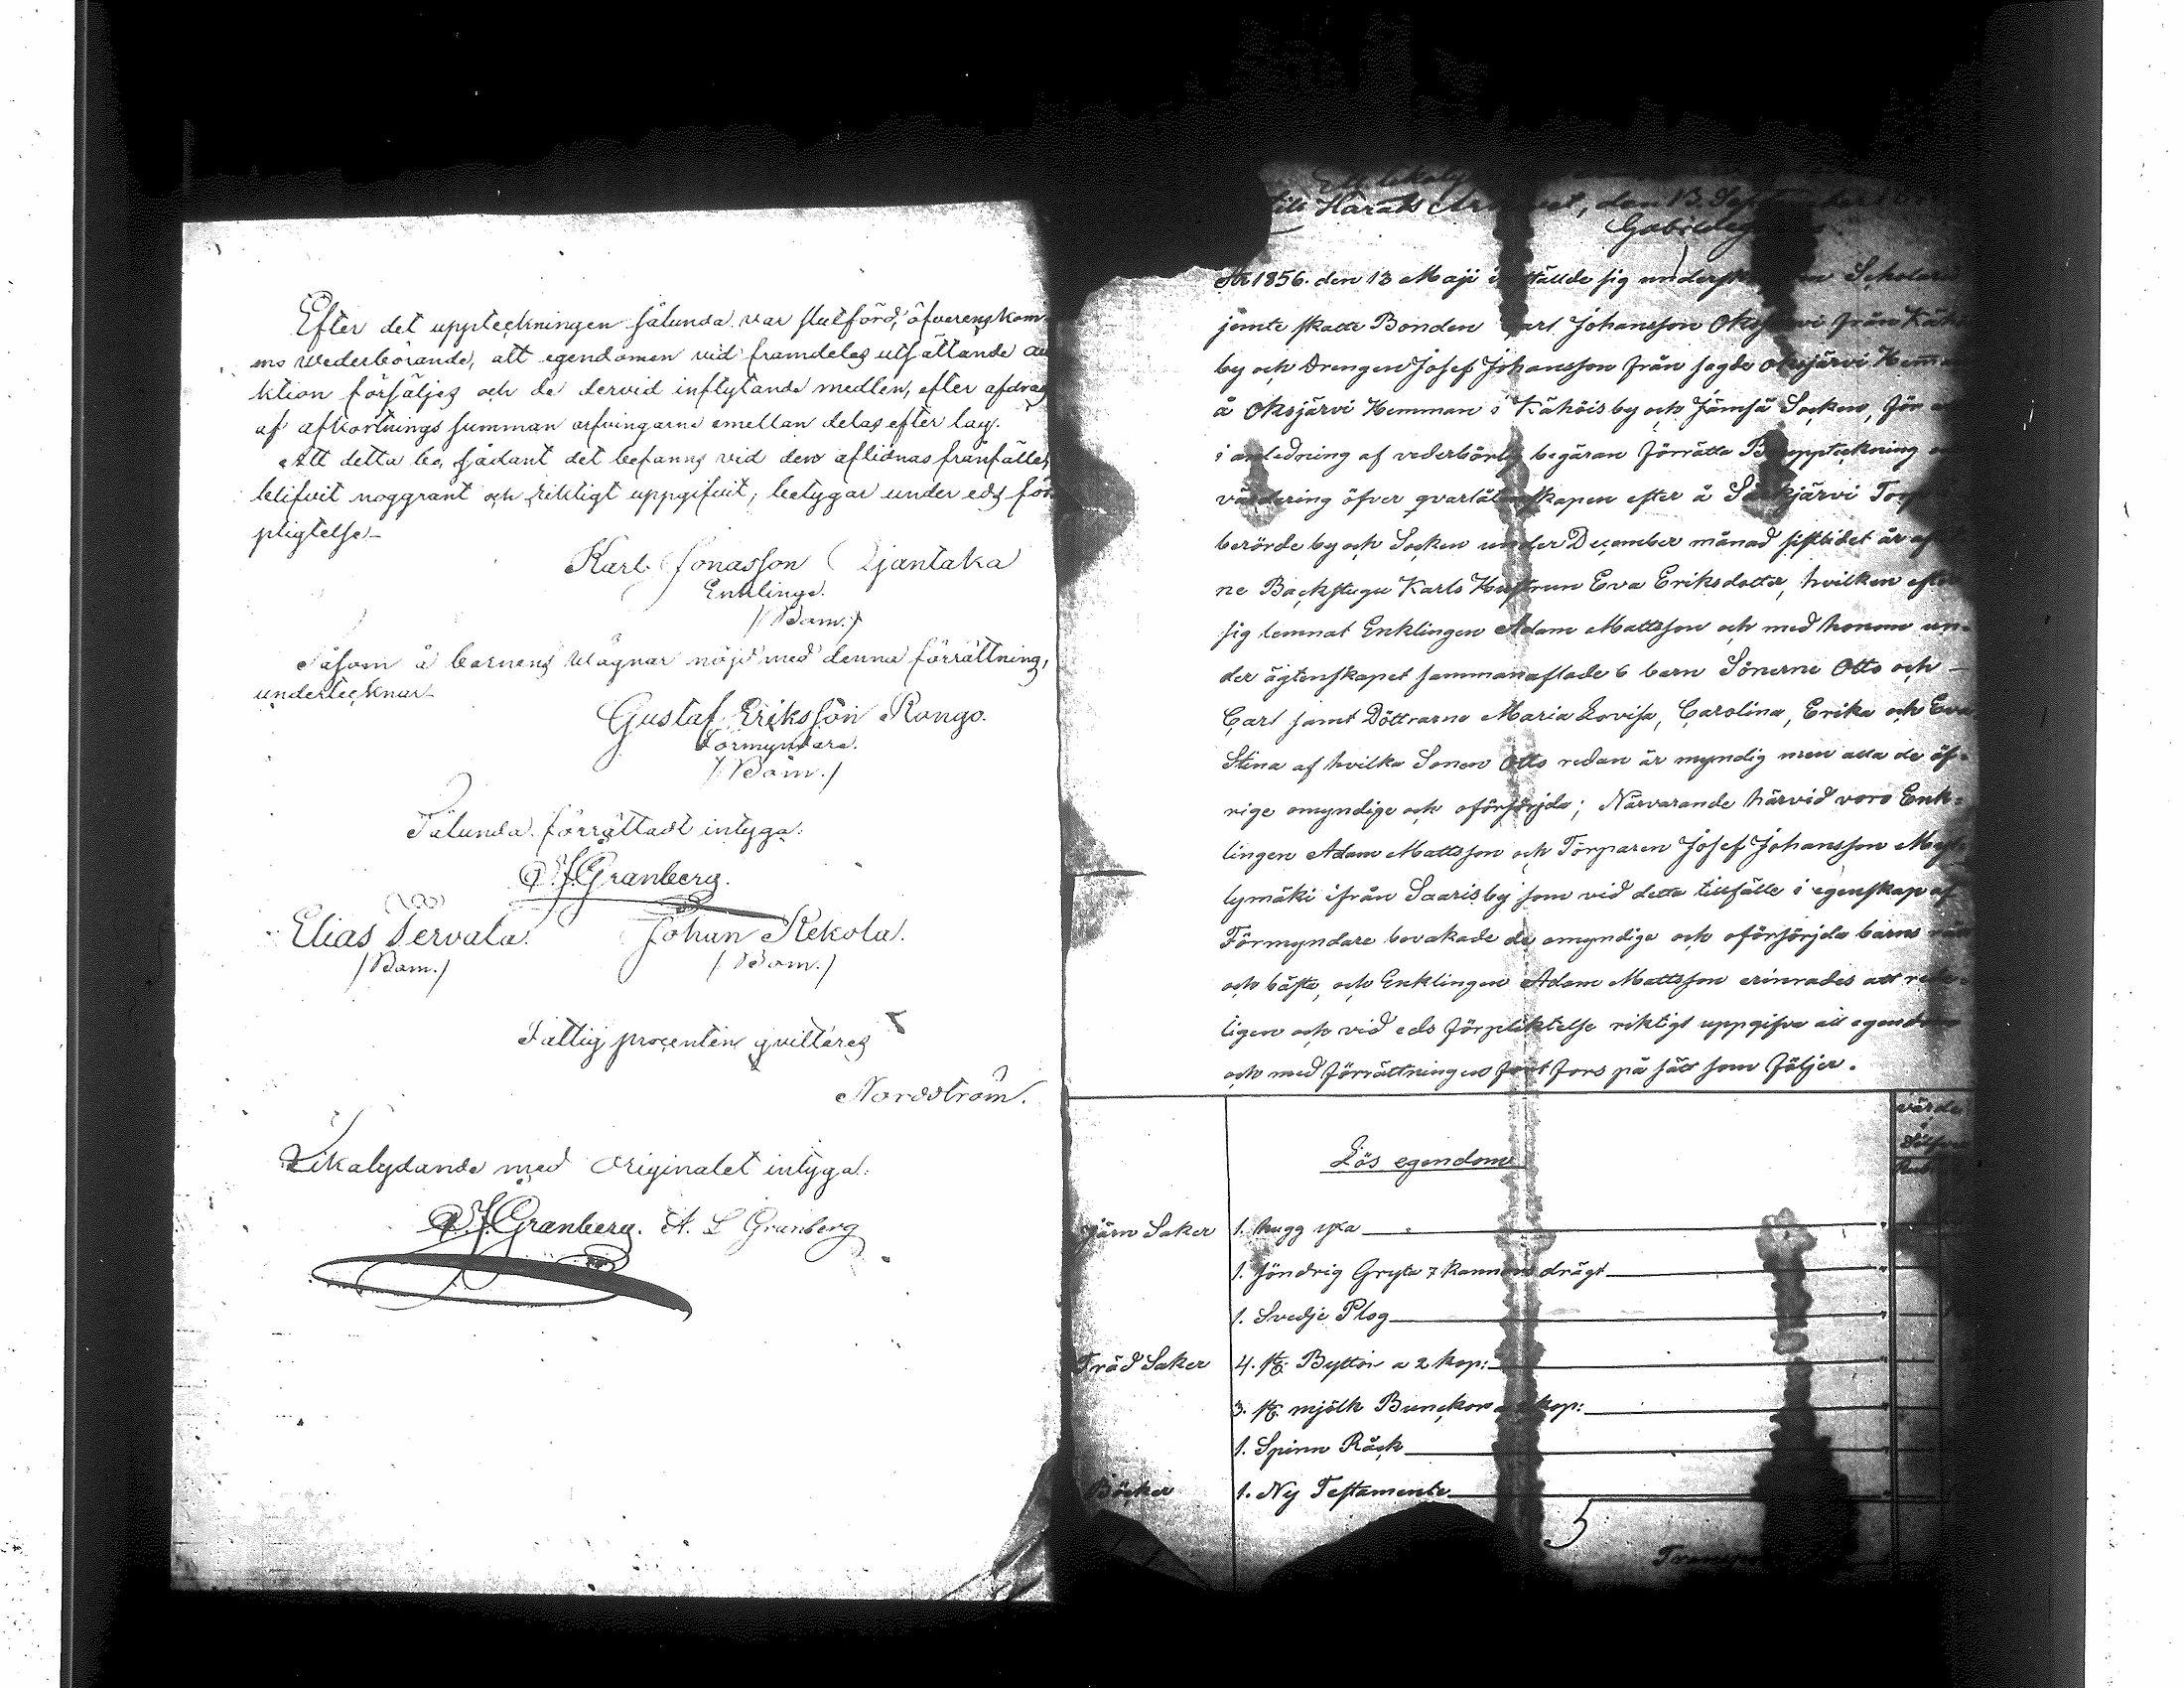 Efter det uppteckningen sålunda var slutförd, öfverenskom-
mo wederbörande, att egendomen vid framdeles utsättande au
ktion försäljes och de dervid inflytande medlen, efter afdrag
af afkortnings summan arfvingarne emellan delas efter lag.
Att detta bo, sådant det befanns vid den aflidnas frånfälle,
blifvit noggrant och riktigt uppgifvit, betygar under eds för
pligtelse
Karl Jonasson Ojantaka
Enklinge.
/Bom./
Såsom å barnens wägnar nöjd med denna förrättning,
undertecknar
Gustaf Eriksson Rongo.
Förmyndare.
/Bom./
Sålunda förrättadt intyga:
Granberg.
Elias Servala. Johan Kekola.
/Bom./ /Bom./
Fattig procenten qvitteres
Nordström.
Likalydande med Originalet intyga:
Granberg. A. L Granberg
till Härads den 13.
År 1856. den 13 Maji ställde sig
jemte skatte Bonden Carl Johansson från
by och Drengen Josef Johansson från sagde Oksjärvi
å Oksjärvi Hemman i Kähöis by och Jämsä Socken, för
i anledning af vederbörlig begäran förrätta Bouppteckning
värdering öfver qvarlåtenskapen efter å
berörde by och Socken under December månad sistlidet år
ne Backstugu Karls Hustrun Eva Eriksdotter, hvilken efter
sig lemnat Enklingen Adam Mattsson och med honom un-
der ägtenskapet sammanaflade 6 barn Sönerne Otto och
Carl samt Döttrarne Maria Lovisa, Carolina, Erika och Eva
Stina af hvilka Sonen Otto redan är myndig men alla de öf-
rige omyndige och oförsörjda; Närvarande härvid voro Enk-
lingen Adam Mattsson och Torparen Josef Johansson Myl-
lymäki ifrån Saaris by som vid detta tillfälle i egenskap af
Förmyndare bevakade de omyndige och oförsörjda barns
och bästa, och Enklingen Adam Mattsson erinrades att rede-
ligen och vid eds förpliktelse riktigt uppgifva all egendom
och med förrättningen fort fors på sätt som följer.
värde
Lös egendom
Järn Saker 1. hugg yxa
1. söndrig Gryta 7 kannors drägt
1. Svedje Plog
Träd Saker 4. st. Byttor a 2 kop:
3. st. mjölk Bunckor kop:
1. Spinn Råck
Böcker 1. Ny Testamente